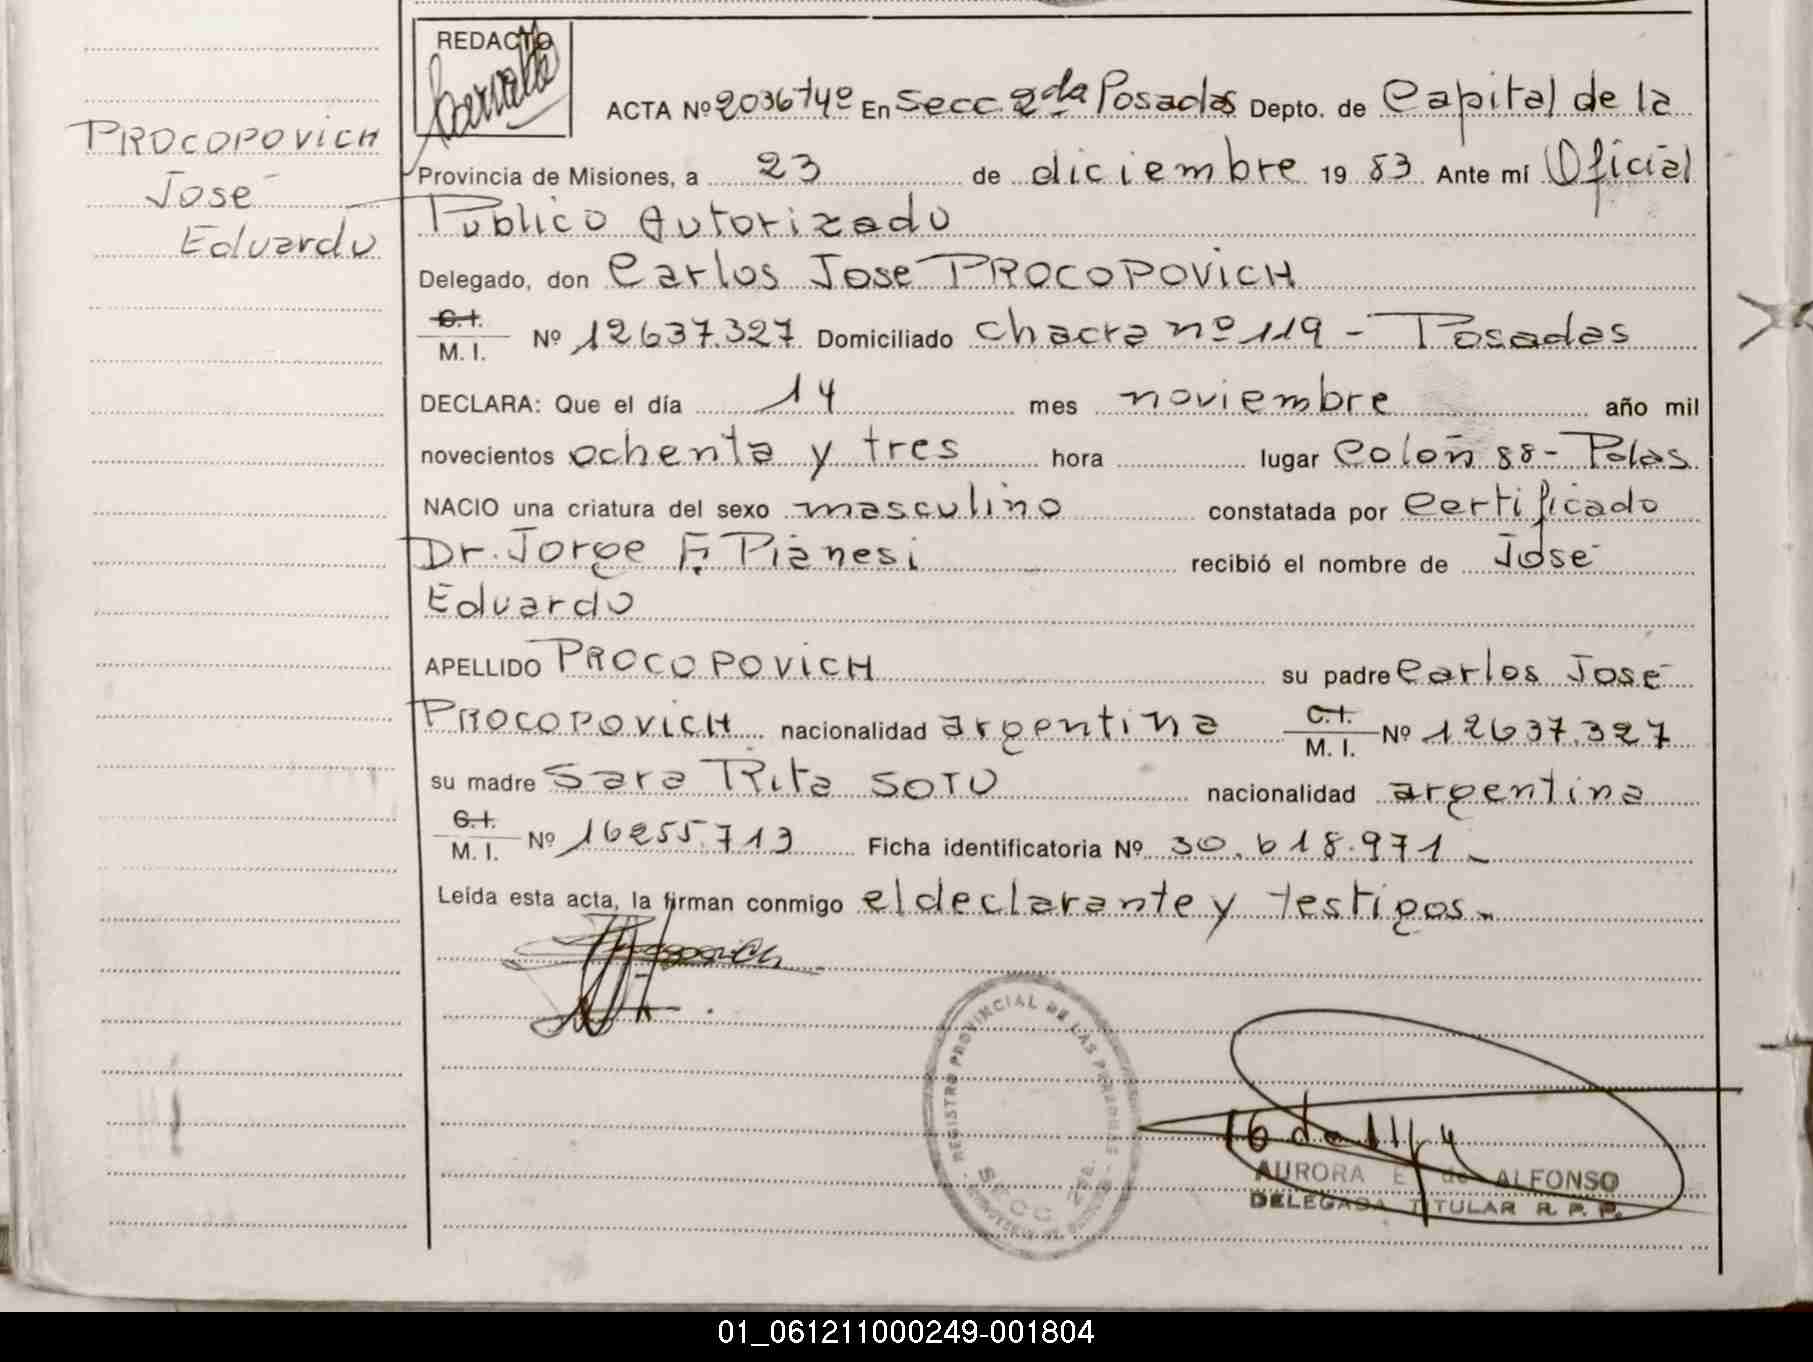 REDACTO
ACTA Nº 2036 Tº 4º En Secc 2da Posadas Depto. de Capital de la
PROCOPOVICH
José
Eduardo
Provincia de Misiones, a 23 de diciembre 19 83 Ante mí Oficial
Publico Autorizado
Delegado, don Carlos Jose PROCOPOVICH
C.I.
M. I. Nº 12637.327 Domiciliado chacra nº 119 - Posadas
DECLARA: Que el día 14 mes noviembre año mil
novecientos ochenta y tres hora lugar Colón 88 - Pdas
NACIO una criatura del sexo masculino constatada por Certificado
Dr. Jorge F. Pianesi recibió el nombre de José
Eduardo
APELLIDO PROCOPOVICH su padre Carlos José
PROCOPOVICH nacionalidad argentina C.I.
M. I. Nº 12637.327
su madre Sara Rita SOTO nacionalidad argentina
C.I.
M. I. Nº 16255.713 Ficha identificatoria Nº 30.618.971.-
Leída esta acta, la firman conmigo el declarante y testigos.-
REGISTRO PROVINCIAL DE LAS PERSONAS
SECC. 2da.
AURORA E. de ALFONSO
DELEGADA TITULAR R. P. P.
01_061211000249-001804